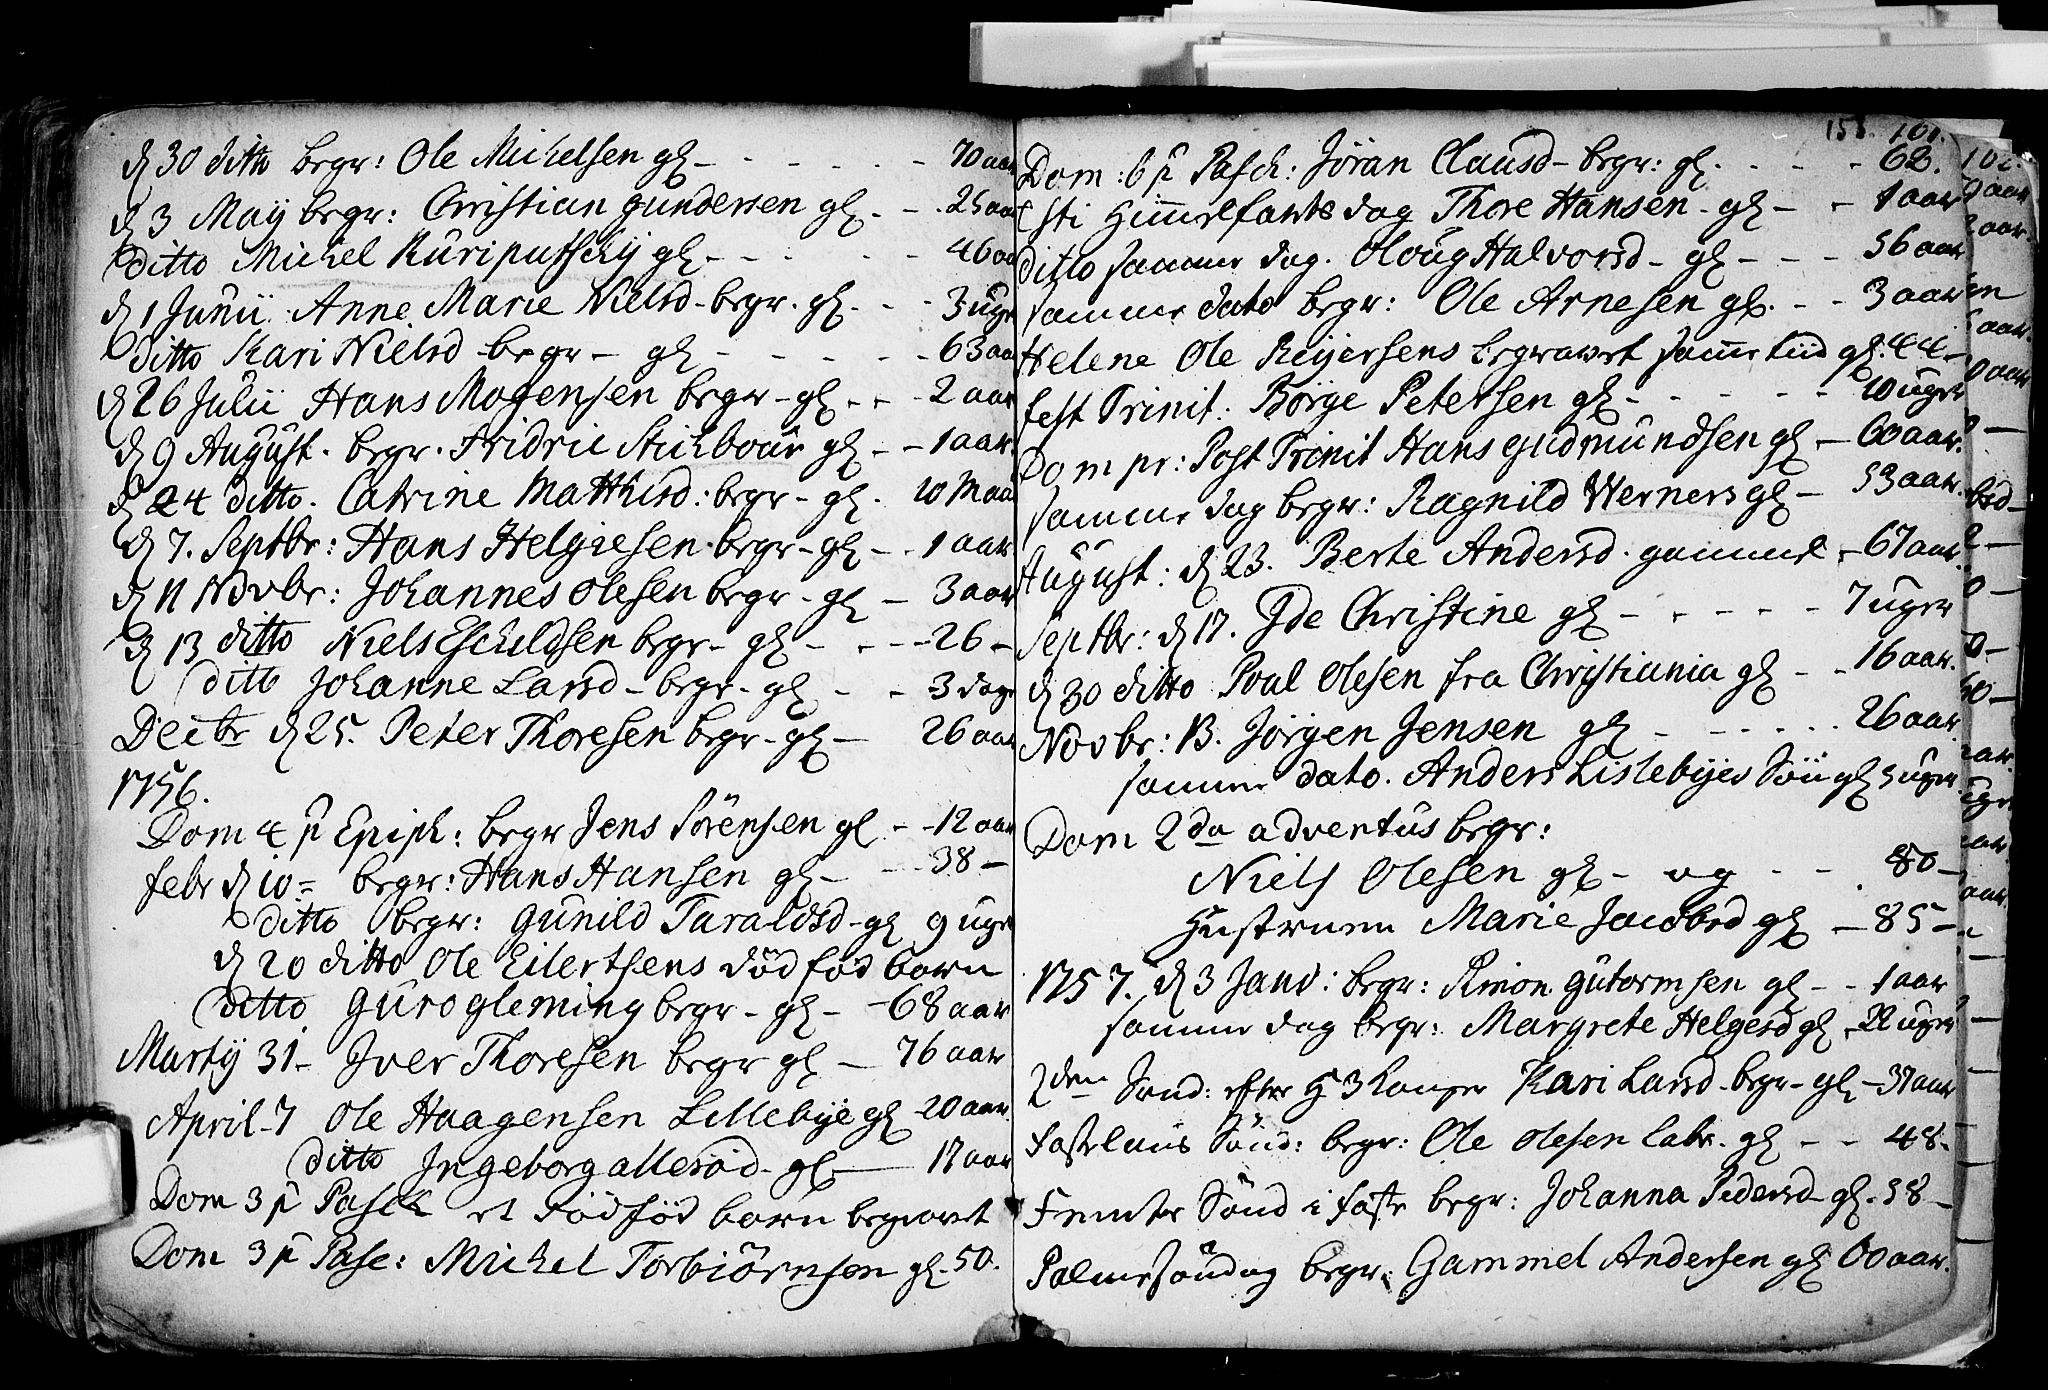 d 30 ditto begr: Ole Michelsen gl - - - - - - 70 aar
d 3 Maij begr: Christian Gundersen gl - - 25 aar
ditto Michel Kuriputschij gl - - - - - 46 aar
d 1 Junii Anne Marie Nielsd - begr. gl - - 3 uger
ditto Kari Nielsd - begr - gl - - - - - 63 aar
d 26 Julii Hans Mogensen begr - gl - - - 2 aar
d 9 August. begr. Fridric Stichbour gl - - 1 aar.
d 24 ditto. Catrine Matthisd: begr - gl - 10 Maa
d 7. Septbr: Hans Helgiesen begr - gl - - 1 aar
d 11 Novbr: Johannes Olesen begr - gl - 3 aar
d 13 ditto Niels Eschildsen begr - gl - - - - 26 -
ditto Johanne Larsd - begr - gl - - 3 dage
Decbr d 25. Peter Thoresen begr - gl - 26 aar
1756.
Dom 4 p Epiph: begr Jens Sørensen gl - - 12 aar
febr d 10 = begr: Hans Hansen gl - - - 38 -
ditto begr: Gunild Taraldsd - gl 9 uger
d 20 ditto Ole Eilertsens død fød barn
ditto Guro Gleming begr - gl - 68 aar
Martij 31 - Iver Thoresen begr gl - 76 aar
April - 7 Ole Haagensen Lillebÿe gl - 20 aar.
ditto Ingeborg allerød - gl - 17 aar
Dom 3 p Pasch et dödföd barn begravet
Dom 3 p Pasc: Michel Torbiörnsen gl - 50.
158. 101.
Dom: 6 p Pasch: Jöran Clausd - begr: gl - - - - 62.
Xsti Himmelfarts dag Thore Hansen - gl - - 1 aar
ditto samme dag. Oloug Halvorsd - gl - - - 56 aar
samme dato begr: Ole Arnesen gl - - - 3 aar
Helene Ole Reijersens begravet samme tiid gl. 44 -
fest Trinit: Börge Petersen gl - - - - - 10 uger
Dom pr: Post Trinit Hans Gudmundsen gl - 60 aar.
samme dag begr: Ragnild Werners gl - 53 aar.
August: d 23. Berte Andersd. gammel - 67 aar.
Septbr: d 17. Ide Christine gl - - - - - 7 uger
d 30 ditto Poul Olesen fra Christiania gl - - 16 aar.
Novbr: 13. Jörgen Jensen gl - - - - - 26 aar.
samme dato. Anders Lislebÿes Sön gl 5 uger
Dom 2da adventus begr:
Niels Olesen gl - og - - - 80 -
Hustruen Marie Jacobsd gl - 85 -
1757. d 3 Janv: begr: Simon Gutormsen gl - - 1 aar
samme dag begr: Margrete Helgesd gl - 22 uger
2den Sönd: efter H 3 Konger Kari Larsd - begr - gl - 37 aar
Fastelauns Sönd: begr: Ole Olesen gl - - 48.
Femte Sönd i faste begr: Johanna Pedersd - gl - 38 -
Palmesöndag begr: Gammel Andersen gl 60 aar.